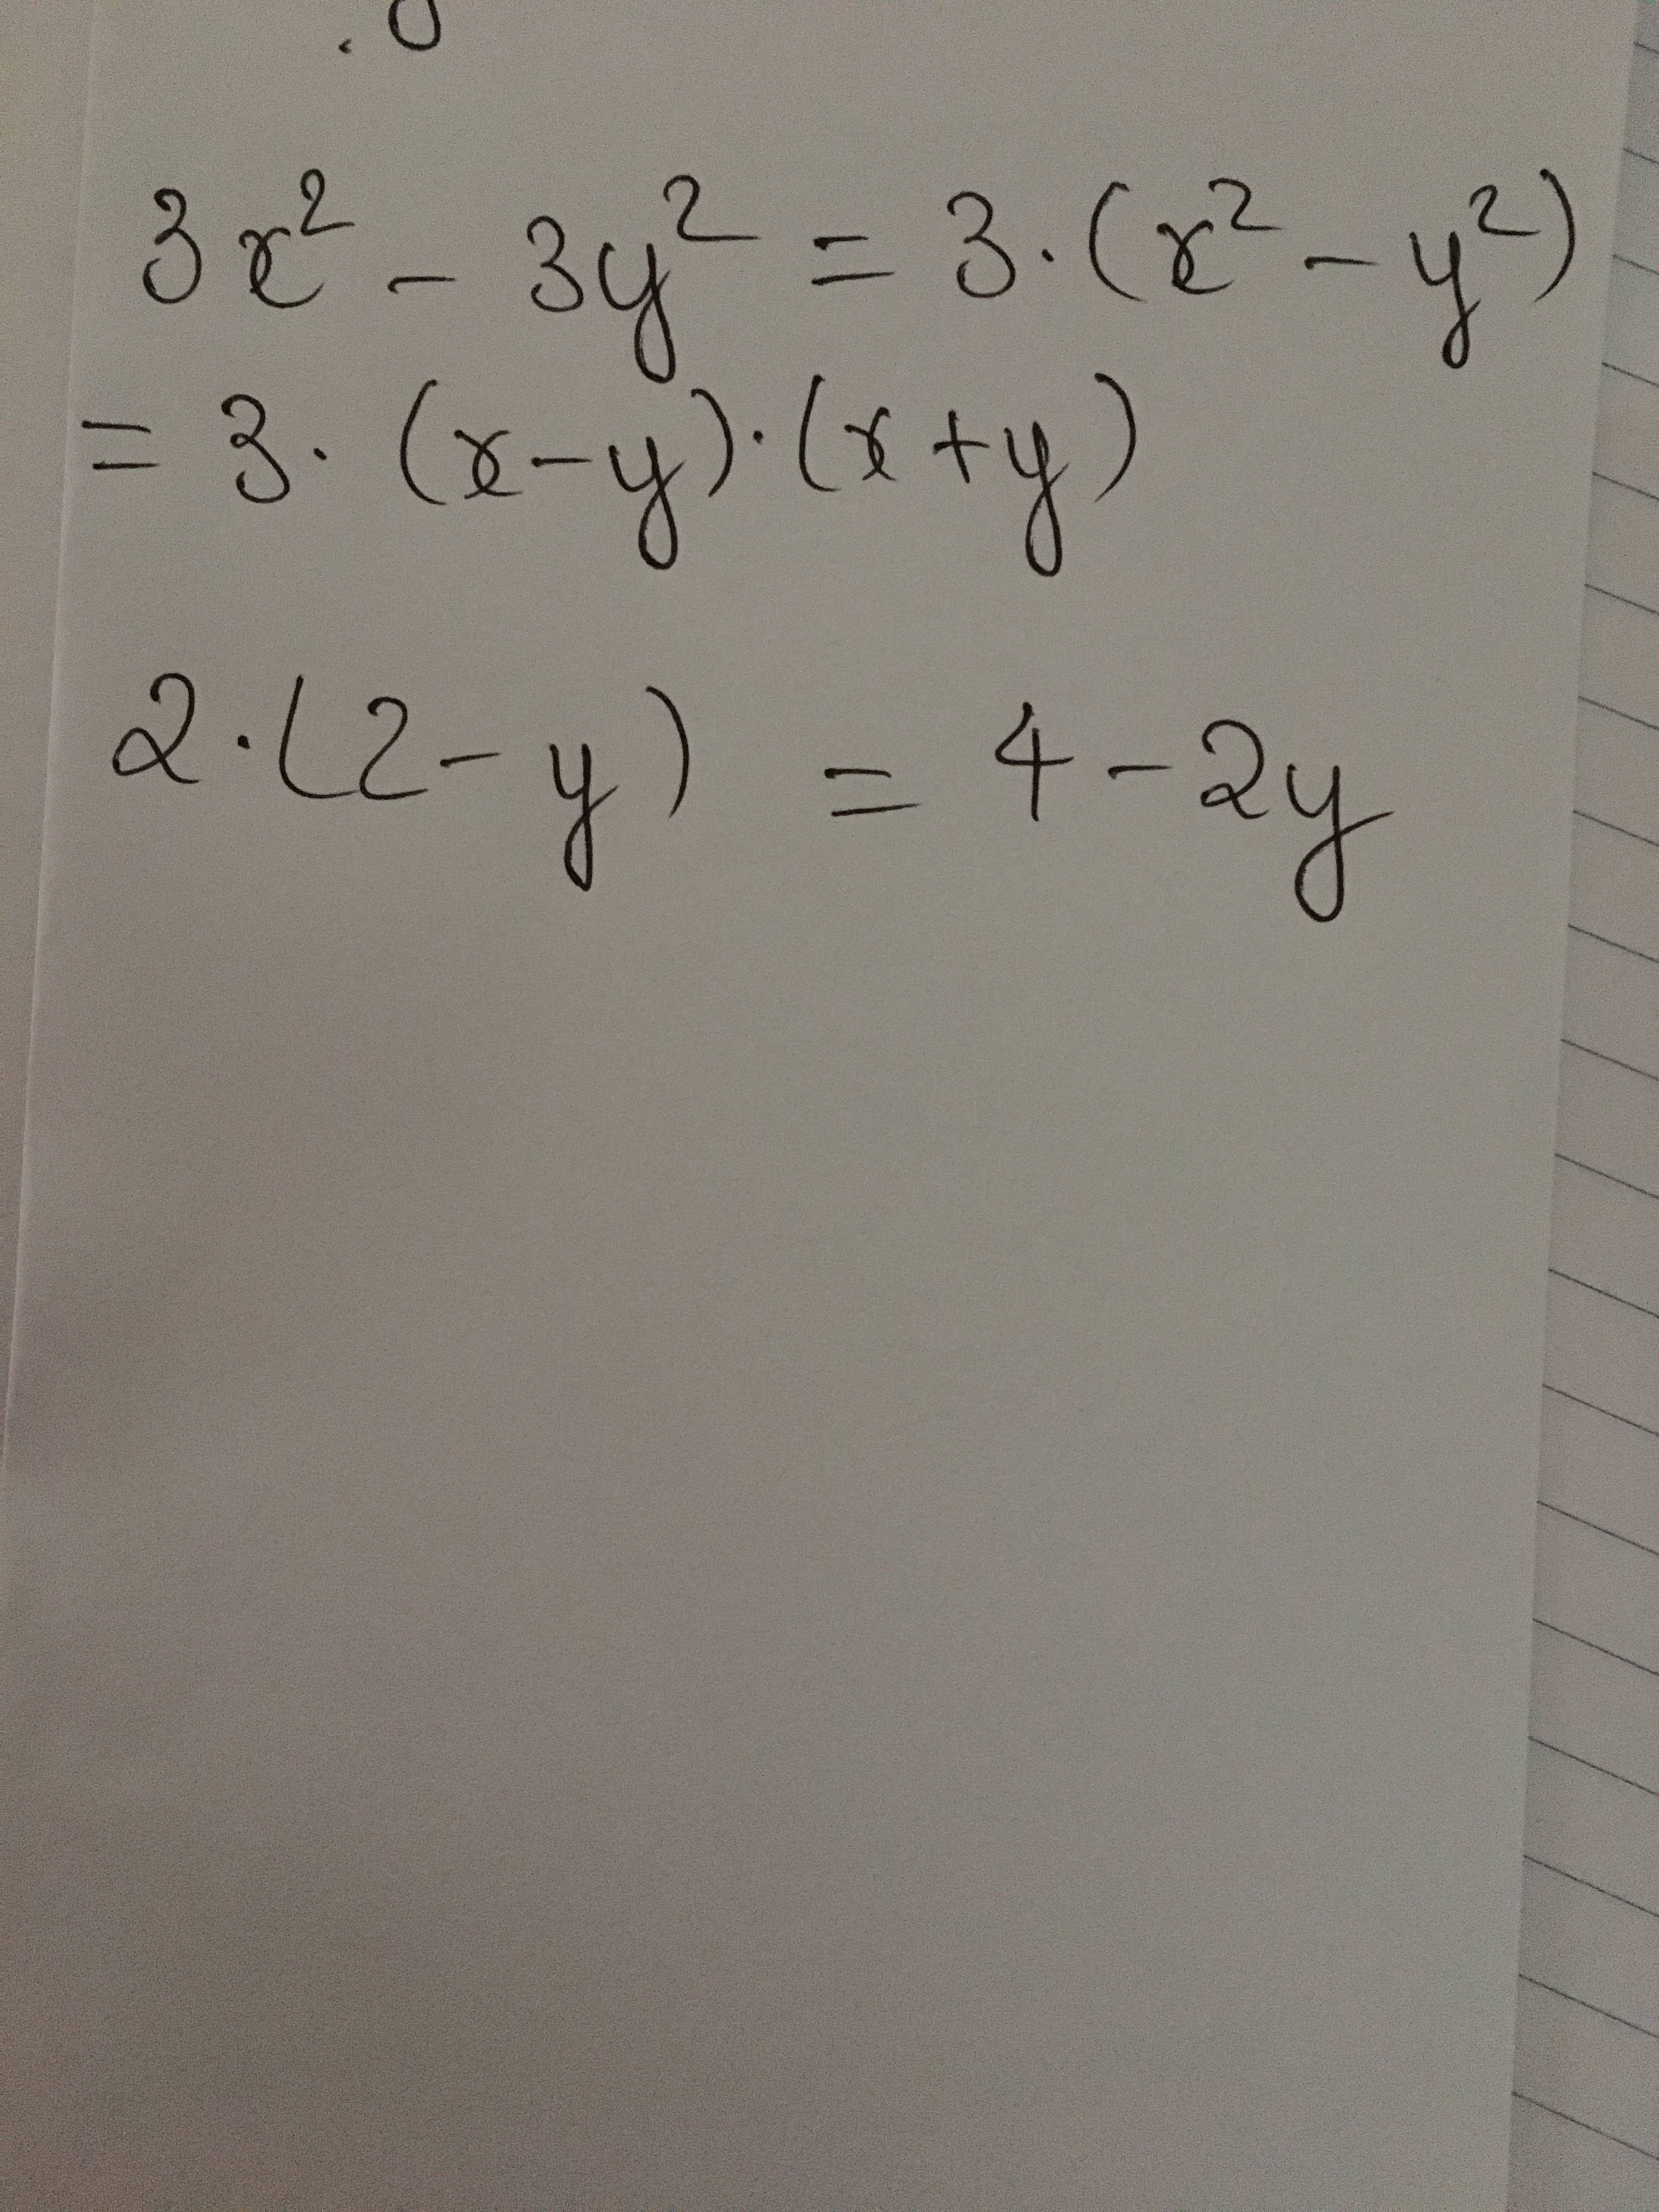 3x² - 3y² = 3·(x² - y²)
= 3·(x-y)·(x+y)
2·(2-y) = 4-2y